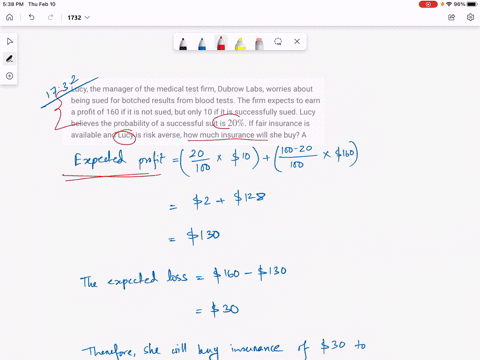 5:38 PM Thu Feb 10
96%
1732
17.32
Lucy, the manager of the medical test firm, Dubrow Labs, worries about
being sued for botched results from blood tests. The firm expects to earn
a profit of 160 if it is not sued, but only 10 if it is successfully sued. Lucy
believes the probability of a successful suit is 20%. If fair insurance is
available and Lucy is risk averse, how much insurance will she buy? A
Expected profit = (20/100 × $10) + (100-20/100 × $160)
= $2 + $128
= $130
The expected loss = $160 - $130
= $30
Therefore, she will buy insurance of $30 to